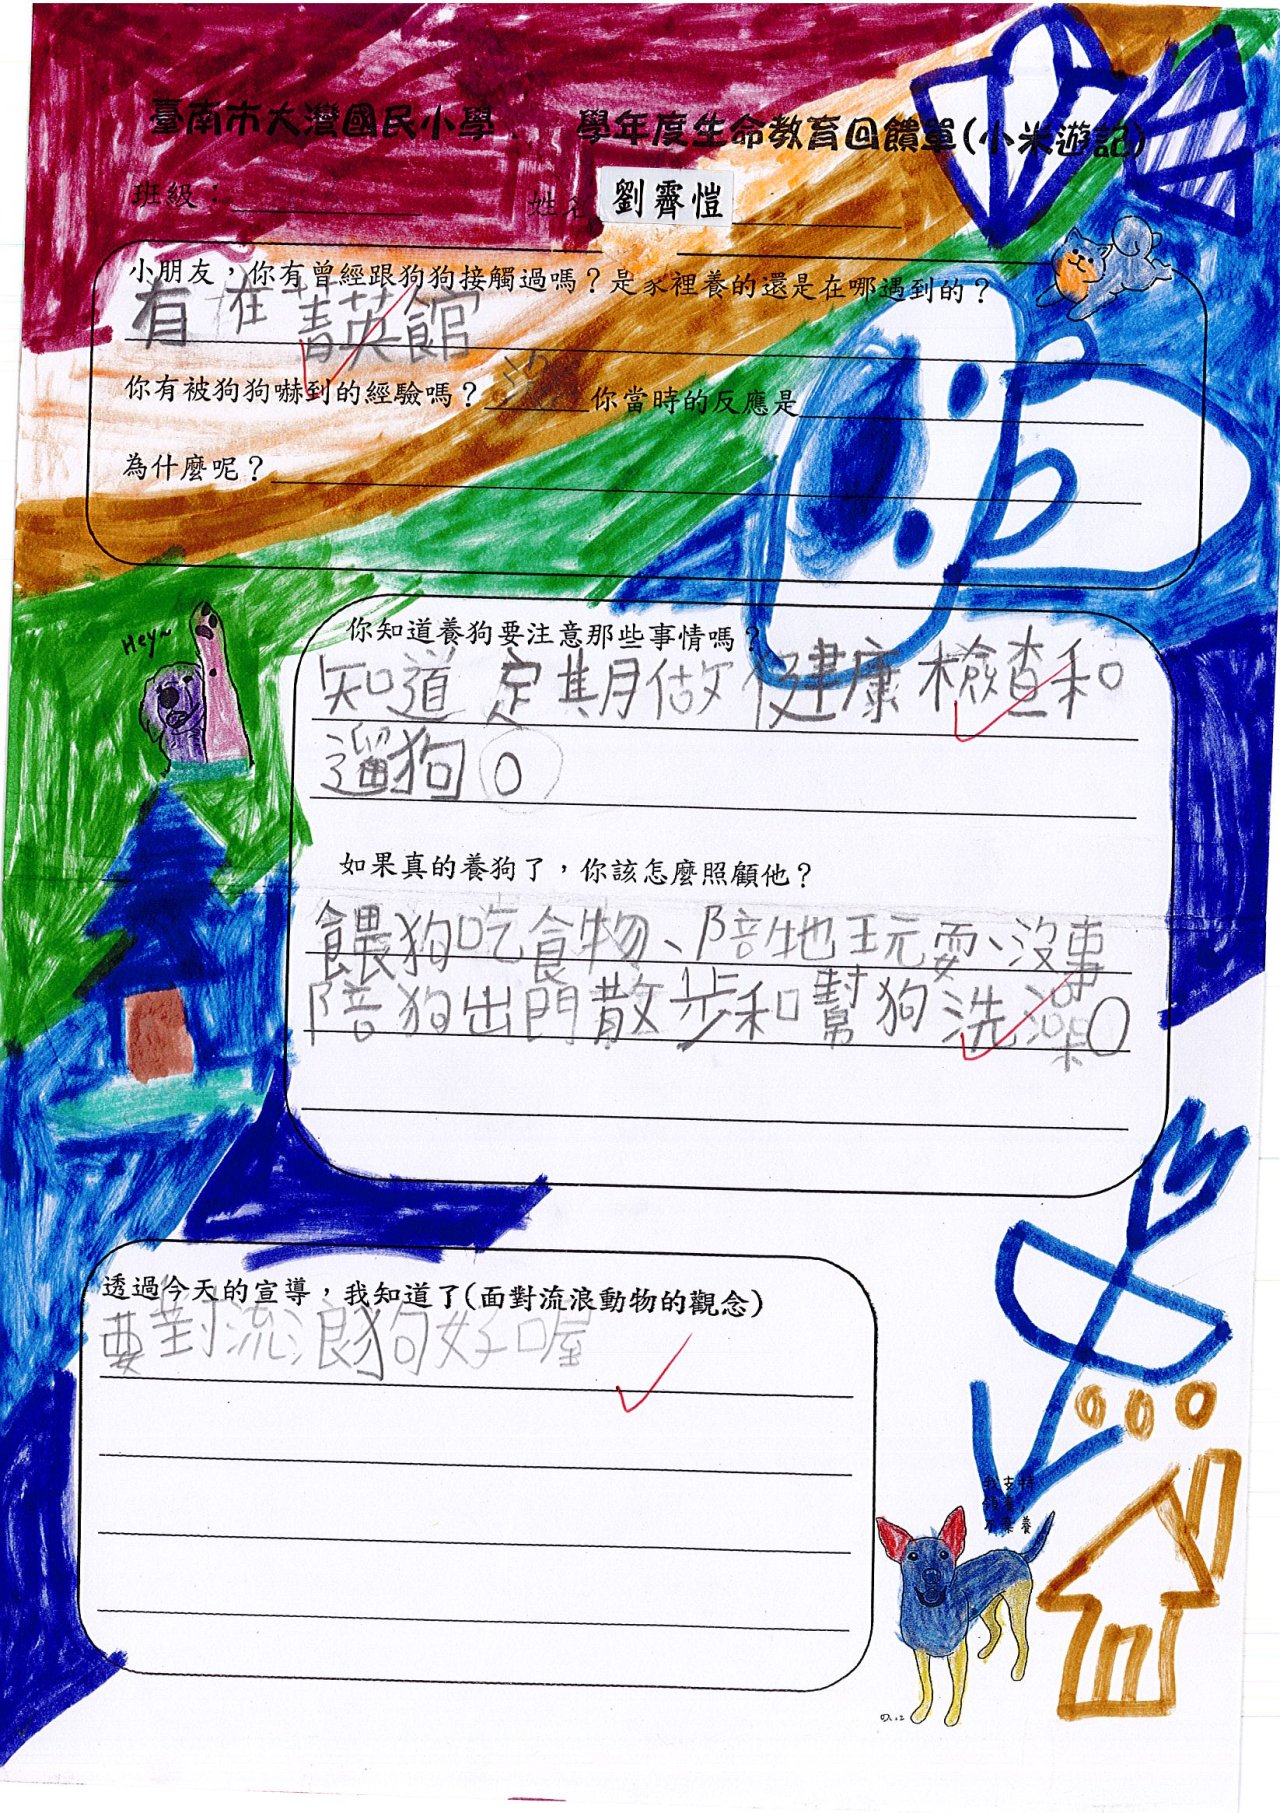 臺南市大灣國民小學 學年度生命教育回饋單(小米遊記)
班級: 姓名 劉霽愷
小朋友,你有曾經跟狗狗接觸過嗎?是家裡養的還是在哪遇到的?
有 在菁英館
你有被狗狗嚇到的經驗嗎? 你當時的反應是
為什麼呢?
Hey~
你知道養狗要注意那些事情嗎?
知道 定期做健康檢查和
遛狗。
如果真的養狗了,你該怎麼照顧他?
餵狗吃食物、陪牠玩耍、沒事
陪狗出門散步和幫狗洗澡。
透過今天的宣導,我知道了(面對流浪動物的觀念)
要對流浪狗好喔
我支持
領養
不棄養